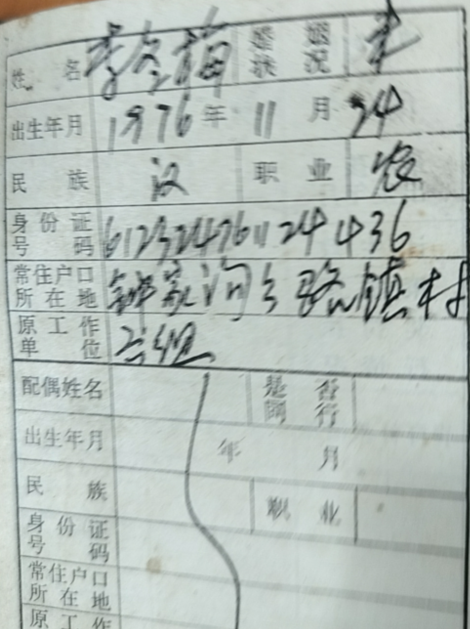 姓 名 李 梅 婚姻状况 未
出生年月 1976 年 11 月 24
民 族 汉 职 业 农
身份证号码 612324761124436
常住户口所在地 家沟 路镇村
原工作单位 六组
配偶姓名 是否同行
出生年月 年 月
民 族 职 业
身份证号码
常住户口所在地
原工作